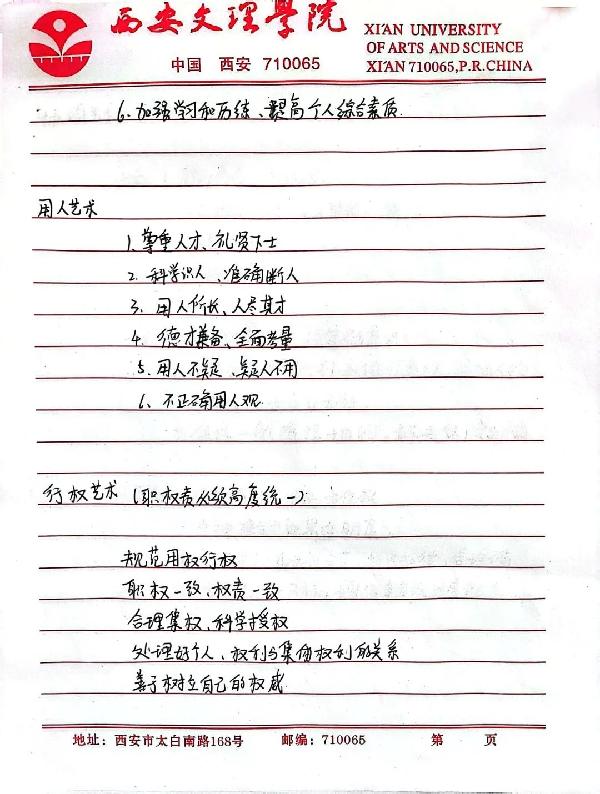 西安文理学院
XI'AN UNIVERSITY
OF ARTS AND SCIENCE
中国 西安 710065
XI'AN 710065,P.R.CHINA
6、加强学习和历练、提高个人综合素质
用人艺术
1. 尊重人才、礼贤下士
2. 科学识人、准确断人
3. 用人所长、人尽其才
4. 德才兼备、全面考量
5. 用人不疑、疑人不用
6、不正确用人观
行权艺术 (职权责必须高度统一)
规范用权行权
职权一致、权责一致
合理集权、科学授权
处理好个人、权利与集体权利的关系
善于树立自己的权威
地址: 西安市太白南路168号 邮编: 710065 第 页